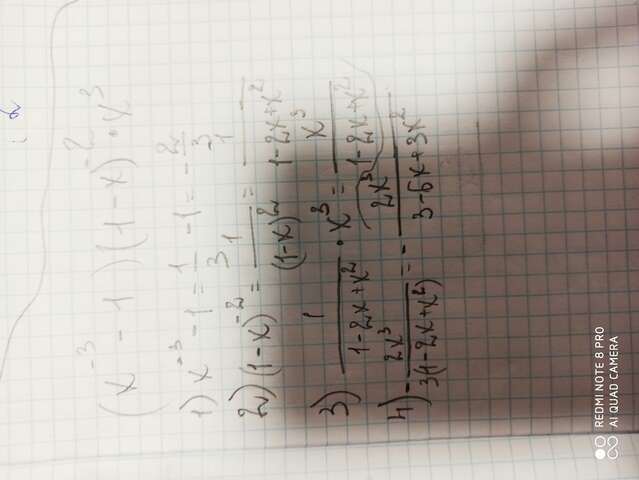 (x⁻³ - 1)(1-x)⁻² · x³
1) x⁻³ - 1 = 1/3 - 1 = - 2/3
2) (1-x)⁻² = 1/(1-x)² = 1/(1-2x+x²)
3) 1/(1-2x+x²) · x³ = x³/(1-2x+x²)
4) - 2x³/3(1-2x+x²) = - 2x³/(3-6x+3x²)
REDMI NOTE 8 PRO
AI QUAD CAMERA